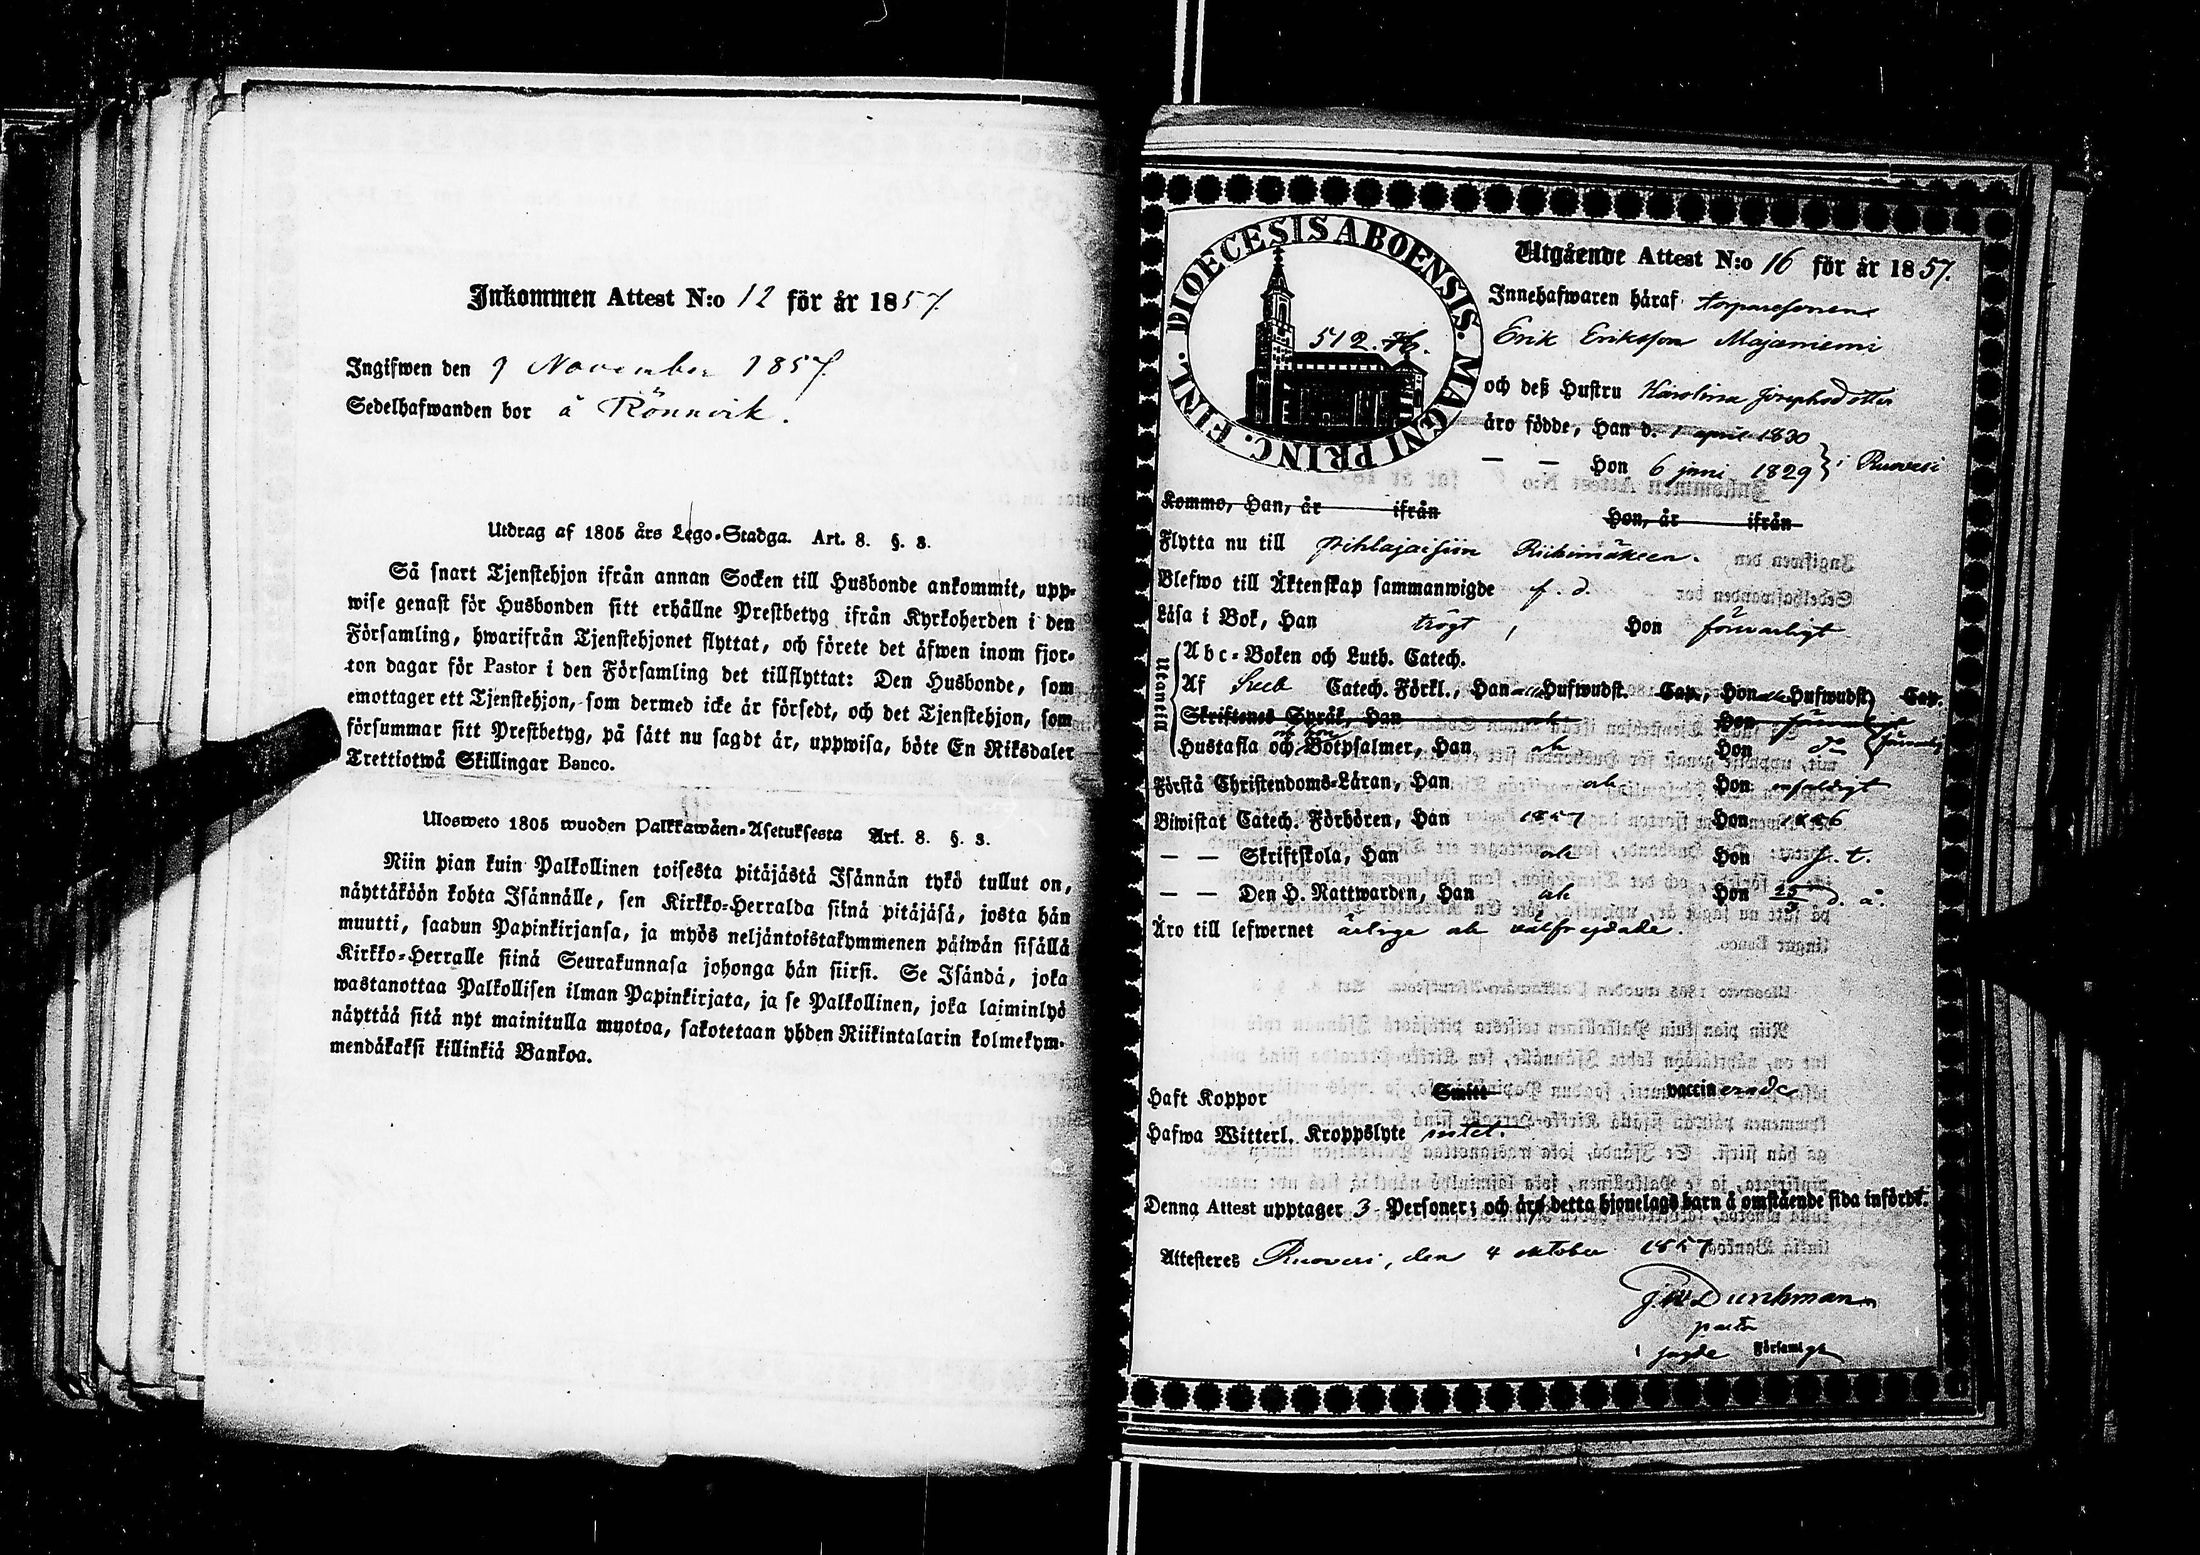 Inkommen Attest N:o 12 för år 1857.
Ingifwen den 9 November 1857.
Sedelhafwanden bor å Rönnvik.
Utdrag af 1805 års Lego-Stadga. Art. 8. §. 3.
Så snart Tjenstehjon ifrån annan Socken till Husbonde ankommit, upp-
wise genast för Husbonden sitt erhållne Prestbetyg ifrån Kyrkoherden i den
Församling, hwarifrån Tjenstehjonet flyttat, och förete det äfwen inom fjor-
ton dagar för Pastor i den Församling det tillflyttat: Den Husbonde, som
emottager ett Tjenstehjon, som dermed icke är försedt, och det Tjenstehjon, som
försummar sitt Prestbetyg, på sätt nu sagdt är, uppwisa, böte En Riksdaler
Trettiotwå Skillingar Banco.
Ulosweto 1805 wuoden Palkkawäen-Asetuksesta Art. 8. §. 3.
Niin pian kuin Palkollinen toisesta pitäjästä Isännän tykö tullut on,
näyttäköön kohta Isännälle, sen Kirkko-Herralda siinä pitäjäsä, josta hän
muutti, saadun Papinkirjansa, ja myös neljäntoistakymmenen päiwän sisällä
Kirkko-Herralle siinä Seurakunnasa johonga hän siirsi. Se Isändä, joka
wastanottaa Palkollisen ilman Papinkirjata, ja se Palkollinen, joka laiminlyö
näyttää sitä nyt mainitulla muotoa, sakotetaan yhden Riikintalarin kolmekym-
mendäkaksi killinkiä Bankoa.
DIOECESIS ABOENSIS. MAGNI PRINC. FINL.
512.
Utgående Attest N:o 16 för år 1857.
Innehafwaren häraf torparesonen
Erik Eriksson Majaniemi
och deß Hustru Karolina Josephsdotter
äro födde, Han d. 1 april 1830
— — Hon 6 juni 1829 } i Ruovesi
Kommo, Han, år ifrån Hon, år ifrån
Flytta nu till Pihlajaisiin Riihimäkeen.
Blefwo till Äktenskap sammanwigde f. d.
Läsa i Bok, Han trögt, Hon försvarligt
Utantill
Abc-Boken och Luth. Catech.
Af Sveb Catech. Förkl., Han alla Hufwudst. Cap., Hon alla Hufwudst Cap.
Skriftenes Språk, Han och Hon
Hustafla och Botpsalmer, Han och Hon do
Förstå Christendoms-Läran, Han och Hon enfaldigt
Biwistat Catech. Förhören, Han 1857 Hon 1856
— — Skriftskola, Han och Hon f. t.
— — Den H. Nattwarden, Han och Hon d. å.
Äro till lefwernet ärlige och välfrejdade.
Haft Koppor Smitt vaccinerade
Hafwa Witterl. Kroppslyte intet.
Denna Attest upptager 3 Personer; och äro detta hjonelags barn å omstående sida införde.
Attesteres Ruovesi, den 4 oktober 1857
J. W. Durchman
pastor
i sagde Församl